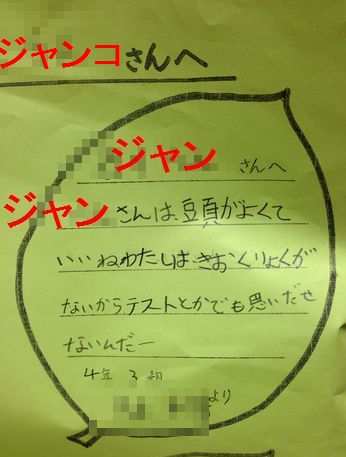 ジャンコさんへ
ジャンさんへ
ジャンさんは豆頁がよくて
いいねわたしはきおくりょくが
ないからテストとかでも思いだせ
ないんだー
4年3組
より